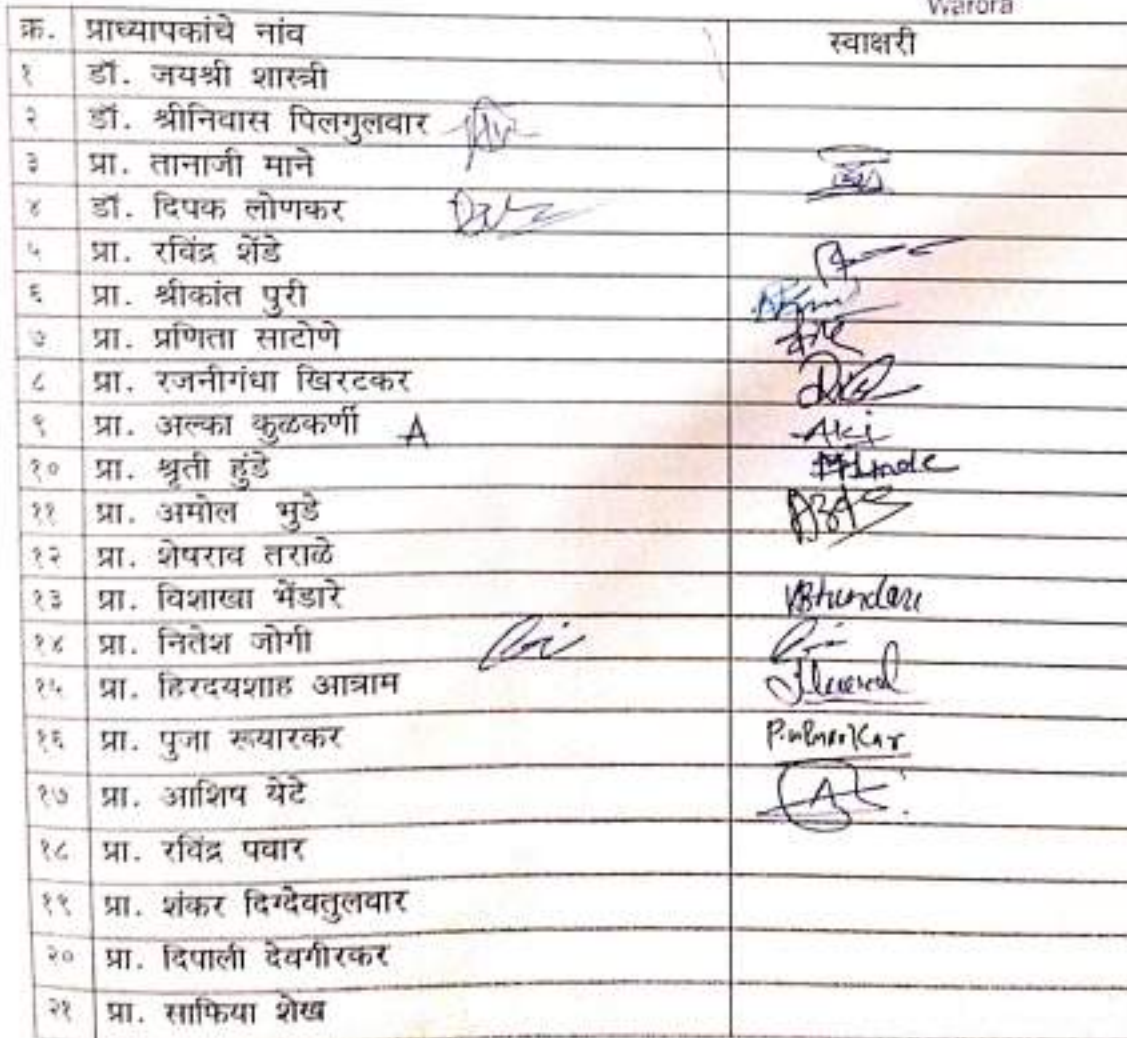 Warora
क्र. प्राध्यापकांचे नांव स्वाक्षरी
१ डॉ. जयश्री शास्त्री
२ डॉ. श्रीनिवास पिलगुलवार
३ प्रा. तानाजी माने
४ डॉ. दिपक लोणकर
५ प्रा. रविंद्र शेंडे
६ प्रा. श्रीकांत पुरी
७ प्रा. प्रणिता साटोणे
८ प्रा. रजनीगंधा खिरटकर
९ प्रा. अल्का कुळकर्णी A
१० प्रा. श्रृती हुंडे
११ प्रा. अमोल भुडे
१२ प्रा. शेषराव तराळे
१३ प्रा. विशाखा भेंडारे
१४ प्रा. नितेश जोगी
१५ प्रा. हिरदयशाह आत्राम
१६ प्रा. पुजा रूयारकर
१७ प्रा. आशिष येटे
१८ प्रा. रविंद्र पवार
१९ प्रा. शंकर दिग्देवतुलवार
२० प्रा. दिपाली देवगीरकर
२१ प्रा. साफिया शेख